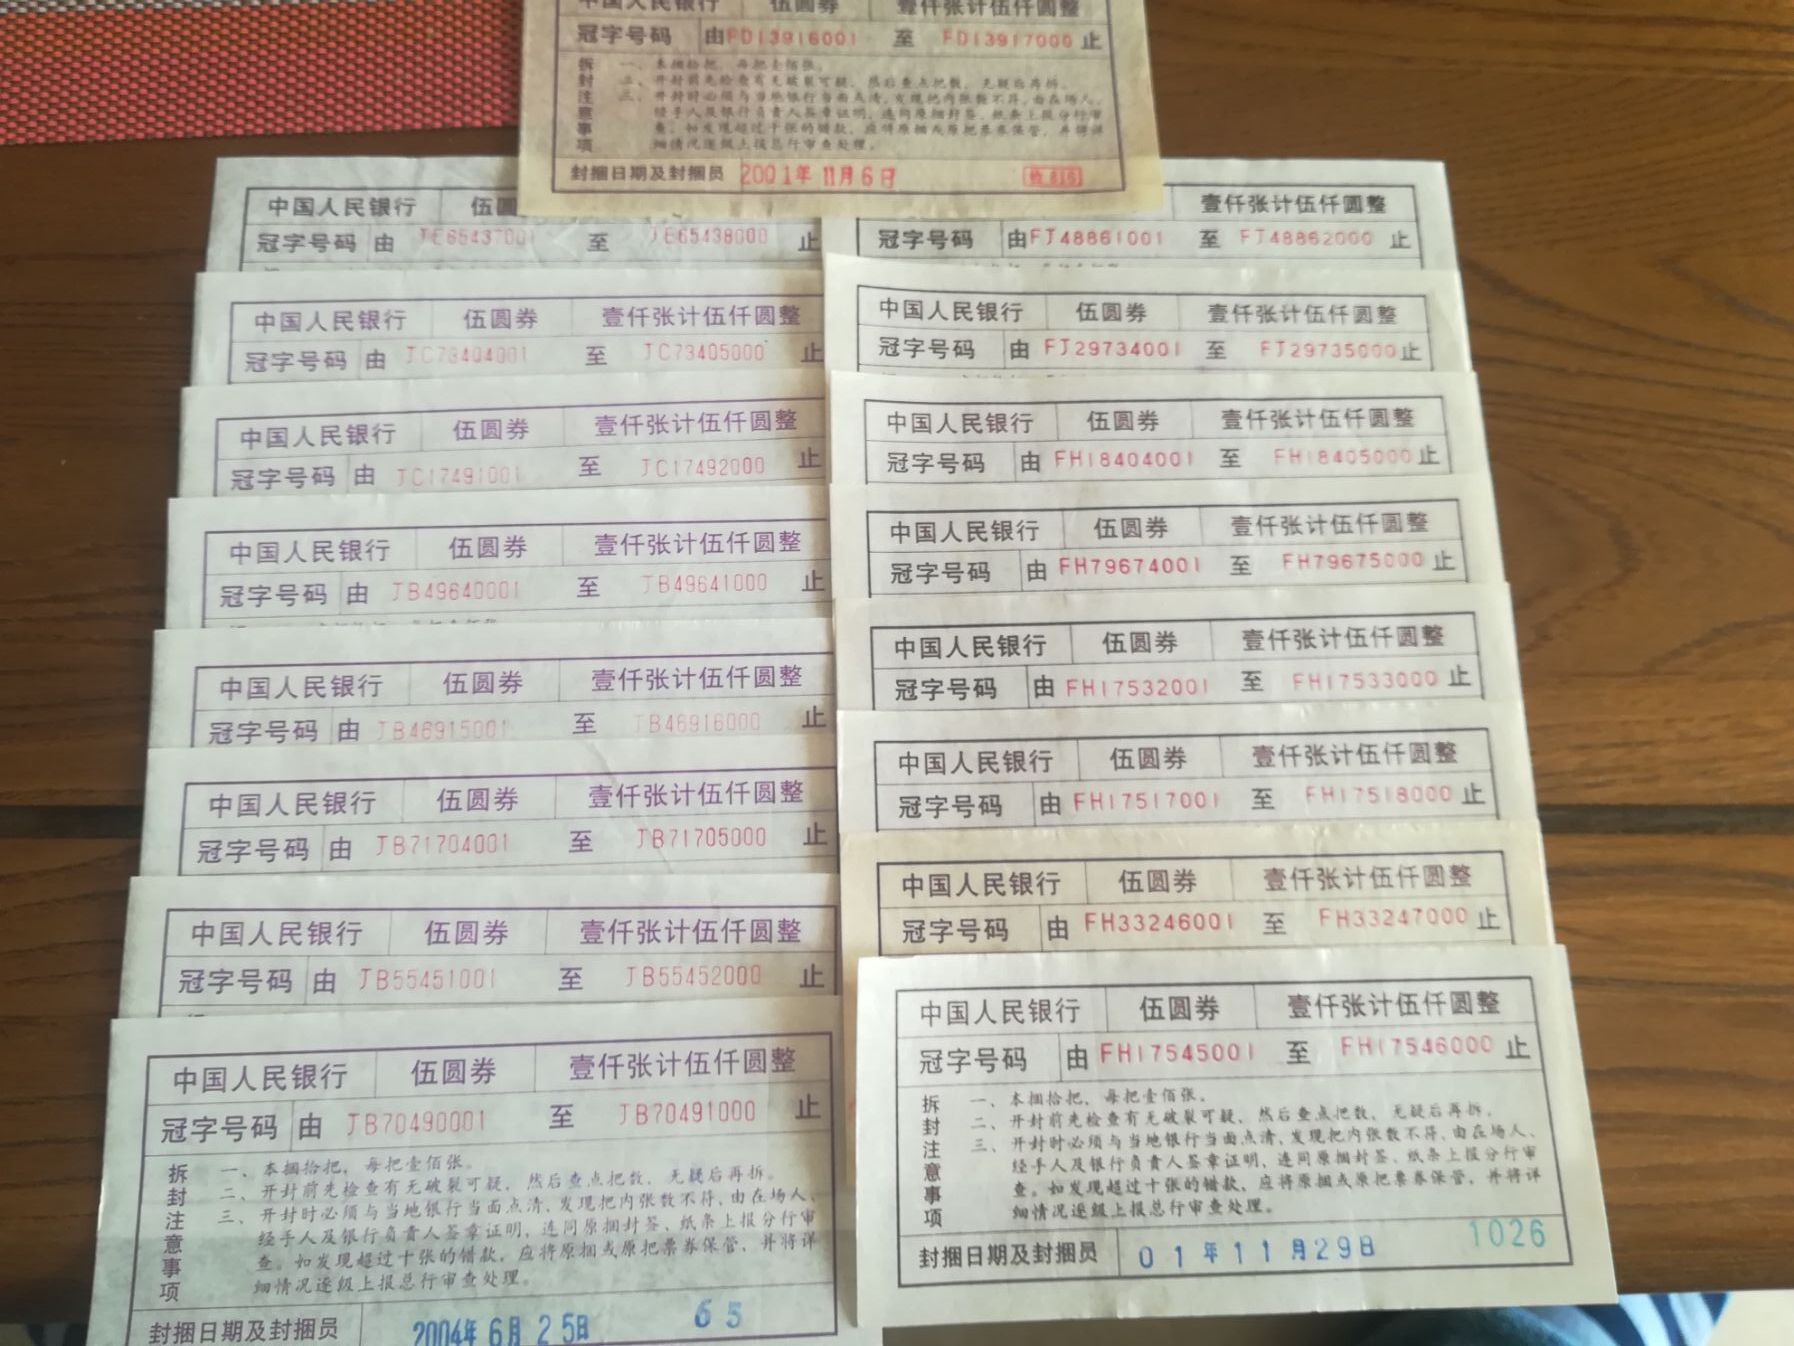 中国人民银行 伍圆券 壹仟张计伍仟圆整
冠字号码 由FD13916001 至 FD13917000 止
拆封注意事项
一、本捆拾把，每把壹佰张。
二、开封前先检查有无破裂可疑，然后查点把数，无疑后再拆。
三、开封时必须与当地银行当面点清，发现把内张数不符，由在场人、
经手人及银行负责人签章证明，连同原捆封签、纸条上报分行审
查。如发现超过十张的错款，应将原捆或原把票券保管，并将详
细情况逐级上报总行审查处理。
封捆日期及封捆员 2001年11月6日
中国人民银行 伍圆
冠字号码 由 JE65437001 至 JE65438000 止
中国人民银行 伍圆券 壹仟张计伍仟圆整
冠字号码 由 JC73404001 至 JC73405000 止
中国人民银行 伍圆券 壹仟张计伍仟圆整
冠字号码 由 JC17491001 至 JC17492000 止
中国人民银行 伍圆券 壹仟张计伍仟圆整
冠字号码 由 JB49640001 至 JB49641000 止
中国人民银行 伍圆券 壹仟张计伍仟圆整
冠字号码 由 JB46915001 至 JB46916000 止
中国人民银行 伍圆券 壹仟张计伍仟圆整
冠字号码 由 JB71704001 至 JB71705000 止
中国人民银行 伍圆券 壹仟张计伍仟圆整
冠字号码 由 JB55451001 至 JB55452000 止
中国人民银行 伍圆券 壹仟张计伍仟圆整
冠字号码 由 JB70490001 至 JB70491000 止
拆封注意事项
一、本捆拾把，每把壹佰张。
二、开封前先检查有无破裂可疑，然后查点把数，无疑后再拆。
三、开封时必须与当地银行当面点清，发现把内张数不符，由在场人、
经手人及银行负责人签章证明，连同原捆封签、纸条上报分行审
查。如发现超过十张的错款，应将原捆或原把票券保管，并将详
细情况逐级上报总行审查处理。
封捆日期及封捆员 2004年6月25日 65
壹仟张计伍仟圆整
冠字号码 由FJ48861001 至 FJ48862000 止
中国人民银行 伍圆券 壹仟张计伍仟圆整
冠字号码 由 FJ29734001 至 FJ29735000 止
中国人民银行 伍圆券 壹仟张计伍仟圆整
冠字号码 由 FH18404001 至 FH18405000 止
中国人民银行 伍圆券 壹仟张计伍仟圆整
冠字号码 由 FH79674001 至 FH79675000 止
中国人民银行 伍圆券 壹仟张计伍仟圆整
冠字号码 由 FH17532001 至 FH17533000 止
中国人民银行 伍圆券 壹仟张计伍仟圆整
冠字号码 由 FH17517001 至 FH17518000 止
中国人民银行 伍圆券 壹仟张计伍仟圆整
冠字号码 由 FH33246001 至 FH33247000 止
中国人民银行 伍圆券 壹仟张计伍仟圆整
冠字号码 由 FH17545001 至 FH17546000 止
拆封注意事项
一、本捆拾把，每把壹佰张。
二、开封前先检查有无破裂可疑，然后查点把数，无疑后再拆。
三、开封时必须与当地银行当面点清，发现把内张数不符，由在场人、
经手人及银行负责人签章证明，连同原捆封签、纸条上报分行审
查。如发现超过十张的错款，应将原捆或原把票券保管，并将详
细情况逐级上报总行审查处理。
封捆日期及封捆员 01年11月29日 1026